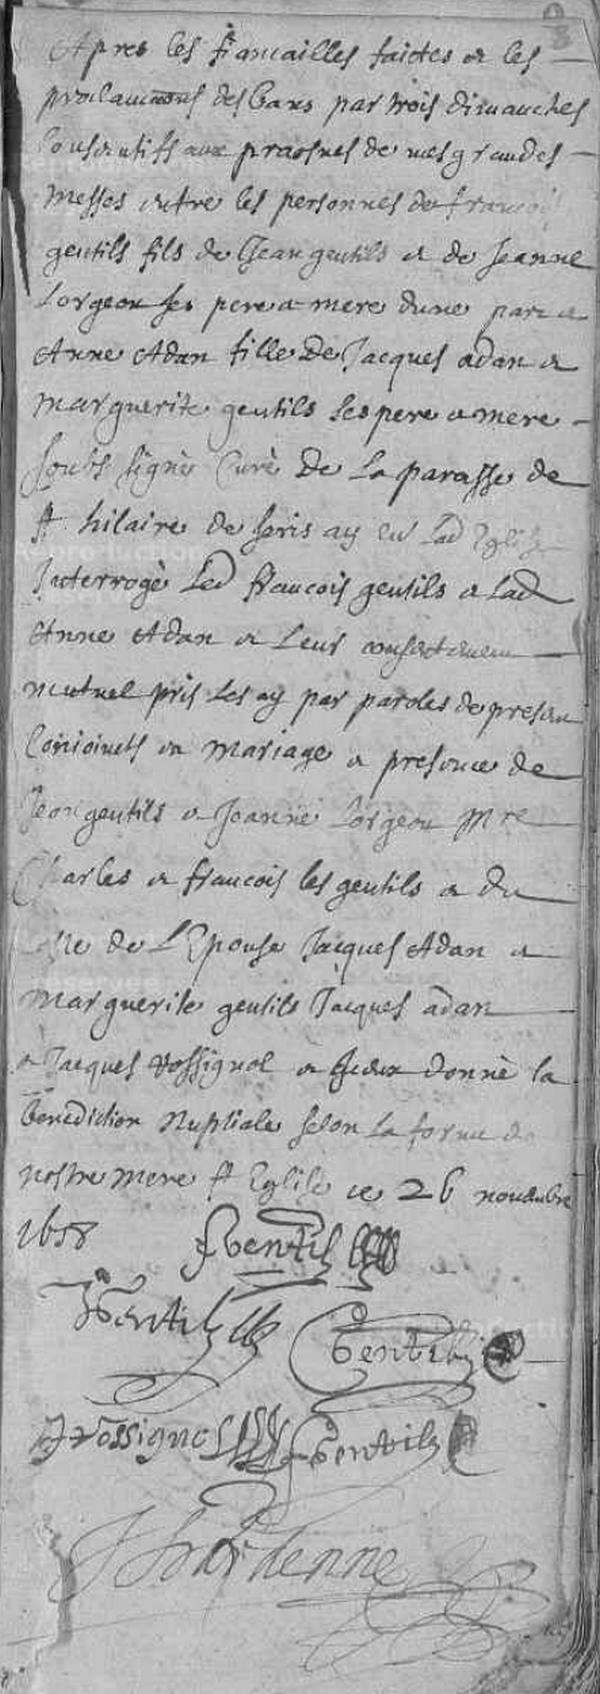 Apres les fiancailles faictes et les
proclamaons des bans par trois dimanches
consecutifs aux prosnes de mes grandes
messes entre les personnes de francois
gentils fils de Jean gentils et de Jeanne
Lorgeou ses pere et mere dune part et
Anne Adan fille De Jacques adan et
marguerite gentils ses pere et mere
soubs signe Curé De La paroisse de
st hilaire de seris ay en Lad Eglise
Interrogé Led francois gentils et Lad
Anne Adan et Leur consentement
mutuel pris Les ay par paroles de present
Conioincts en mariage en presence de
Jean gentils et Jeanne Lorgeou Mre
Charles et francois les gentils et du
coste de L'Epouse Jacques Adan et
marguerite gentils Jacques adan
et Jacques Rossignol et donné la
benediction Nuptiale selon la forme de
nostre mere st Eglise ce 26 nouembre
1658
Gentils
Gentilz
Gentilz
J Rossignol Gentilz